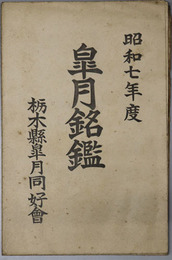 昭和七年度
皐月銘鑑
栃木縣皐月同好會